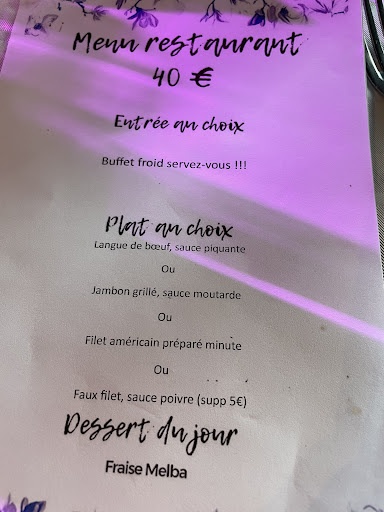 Menu restaurant
40 €
Entrée au choix
Buffet froid servez-vous !!!
Plat au choix
Langue de bœuf, sauce piquante
Ou
Jambon grillé, sauce moutarde
Ou
Filet américain préparé minute
Ou
Faux filet, sauce poivre (supp 5€)
Dessert du jour
Fraise Melba